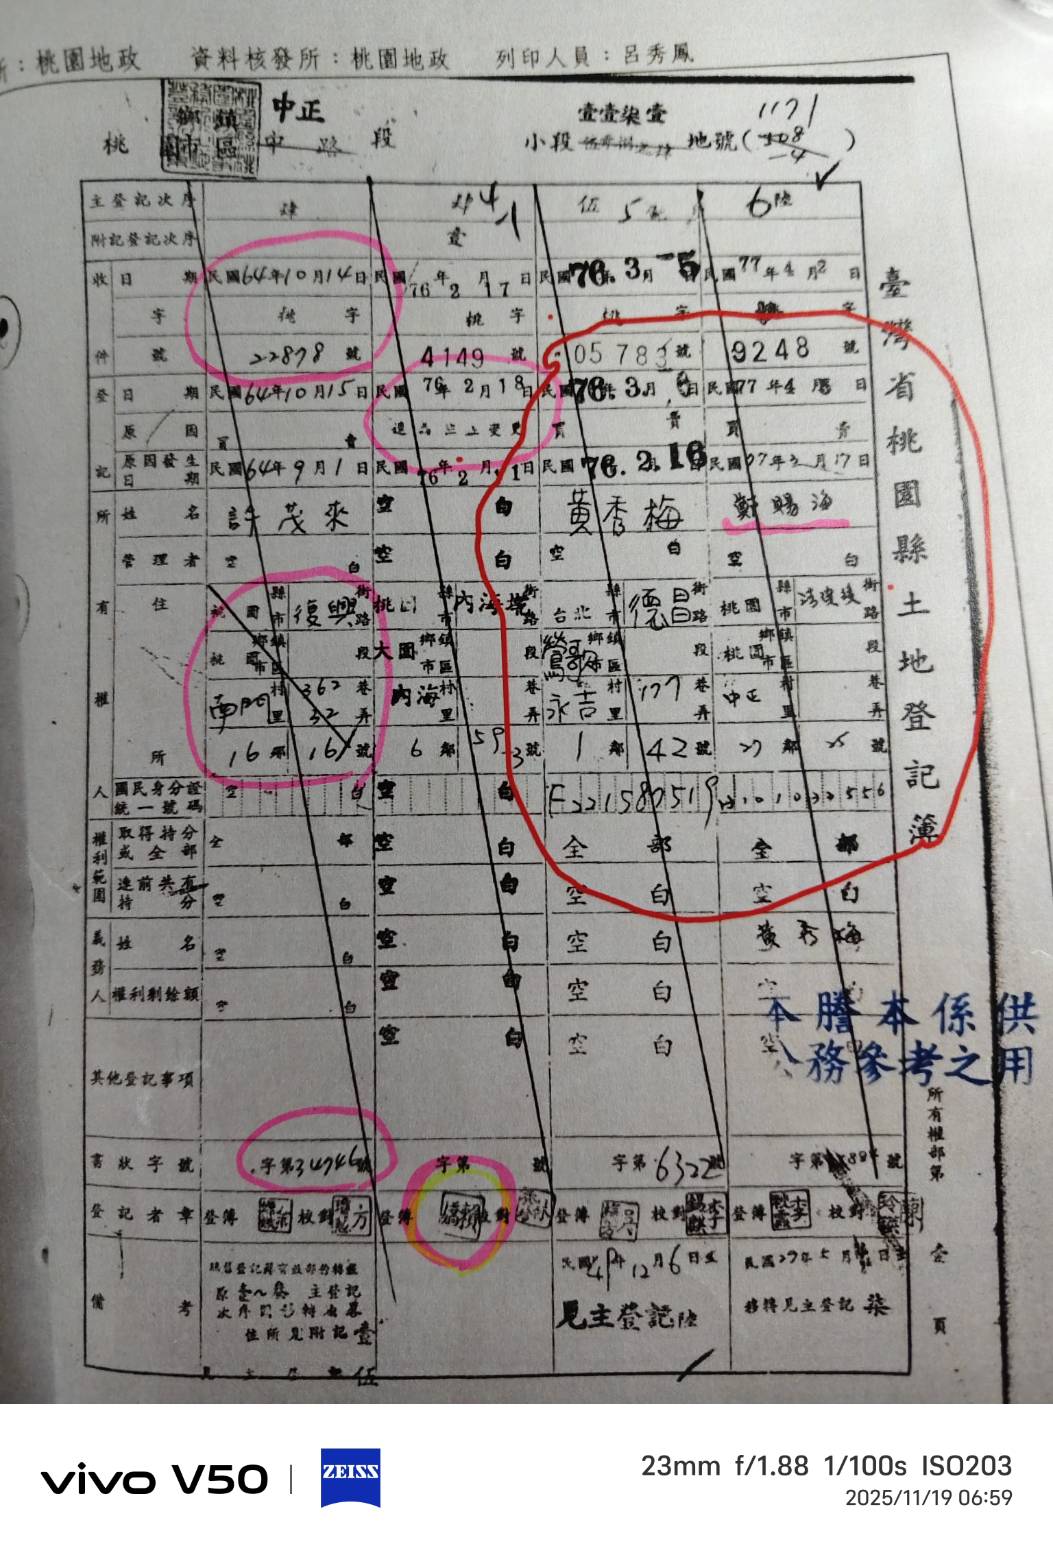 所：桃園地政　資料核發所：桃園地政　列印人員：呂秀鳳
桃 鄉鎮市區 中正 中路 段 壹壹柒壹 小段 地號( 1171 108-4 )
臺灣省桃園縣土地登記簿
主登記次序 肆 肆4 伍5 6陸
附記登記次序 壹 1
收件 日期 民國64年10月14日 民國76年2月17日 民國76.3月-5 民國77年4月2日
字 桃字 桃字 桃字 字
號 22878號 4149號 05783號 9248號
登記 日期 民國64年10月15日 民國76年2月18日 民國76.3月6日 民國77年4月8日
原因 買賣 變更 買賣 買賣
原因發生日期 民國64年9月1日 民國76年2月11日 民國76.2月16 民國77年3月17日
所有權人 姓名 許茂來 空白 黃秀梅 鄭賜海
管理者 空白 空白 空白 空白
住所 桃園縣市 復興街路 桃園縣市 內海墘街路 台北縣市 德昌街路 桃園縣市 街路
桃園鄉鎮市區 段 大園鄉鎮市區 段 鶯歌鄉鎮市區 段 桃園鄉鎮市區
南門村里 362巷 32弄 內海村里 巷弄 永吉村里 177巷弄 中正村里 巷弄
16鄰 16號 6鄰 59-3號 1鄰 42號 27鄰 25號
國民身分證統一號碼 空白 空白 F221580519
權利範圍 取得持分或全部 全部 空白 全部 全部
連前共有持分 空白 空白 空白 空白
義務人 姓名 空白 空白 空白 黃秀梅
權利剩餘額 空白 空白 空白 空白
其他登記事項 空白 空白
本謄本係供
公務參考之用
書狀字號 字第34746號 字第 號 字第6322號 字第 號
登記者章 登簿 校對 登簿 校對 登簿 校對 登簿 校對
備考
主登記
住所見附記壹
伍
12月6日
見主登記陸
移轉見主登記柒
所有權部第
頁
vivo V50 | ZEISS
23mm f/1.88 1/100s ISO203
2025/11/19 06:59